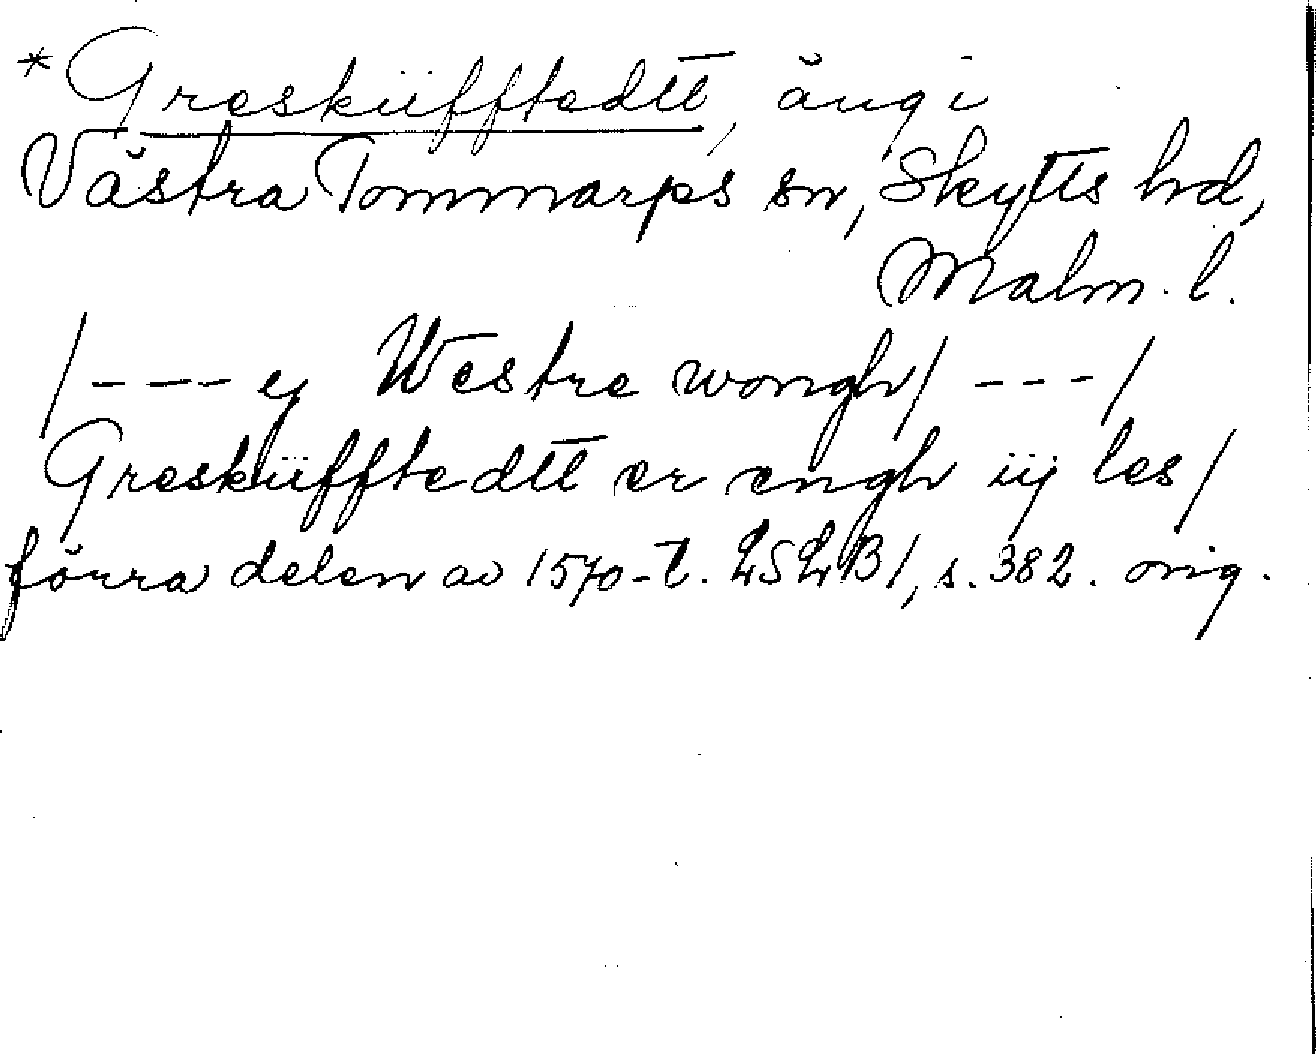 *Gresküfftedtt, äng i
Västra Tommarps sn, Skytts hd,
Malm. l.
/--- ej Westre wongh/ ---/
Greskufftedtt er engh iij les/
förra delen av 1570-t. LSLB1, s. 382. orig.